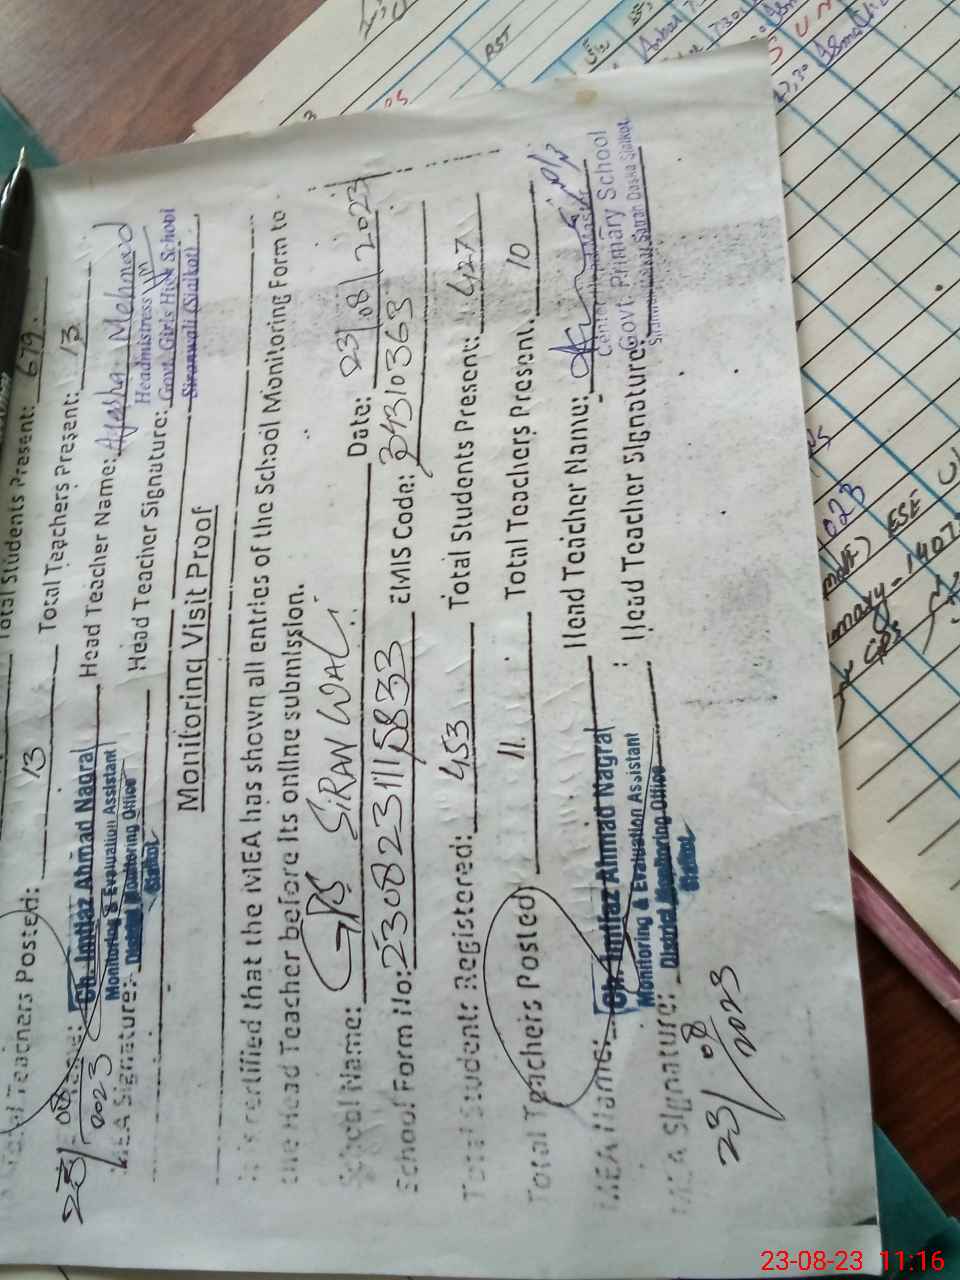 Total Students Present: 679.
Teachers Posted: 13 Total Teachers Present: 13
Ch. Imtiaz Ahmad Nagral Head Teacher Name: Ayesha Mehmood
Monitoring & Evaluation Assistant
District Monitoring Office
Sialkot
MEA Signature: Head Teacher Signature:
Headmistress
Govt. Girls High School
Siranwali (Sialkot)
23/08/2023
Monitoring Visit Proof
It is certified that the MEA has shown all entries of the School Monitoring Form to
the Head Teacher before its online submission.
School Name: GPS SIRANWALI Date: 23/08/2023
School Form No: 2308231115833 EMIS Code: 34310363
Total Student: Registered: 453 Total Students Present: 427
Total Teachers Posted 11 Total Teachers Present. 10
MEA Name: Ch. Imtiaz Ahmad Nagral Head Teacher Name:
Monitoring & Evaluation Assistant
District Monitoring Office
Sialkot
MEA Signature: Head Teacher Signature:
Govt. Primary School
23/08/2023
RST
ESE
23-08-23 11:16